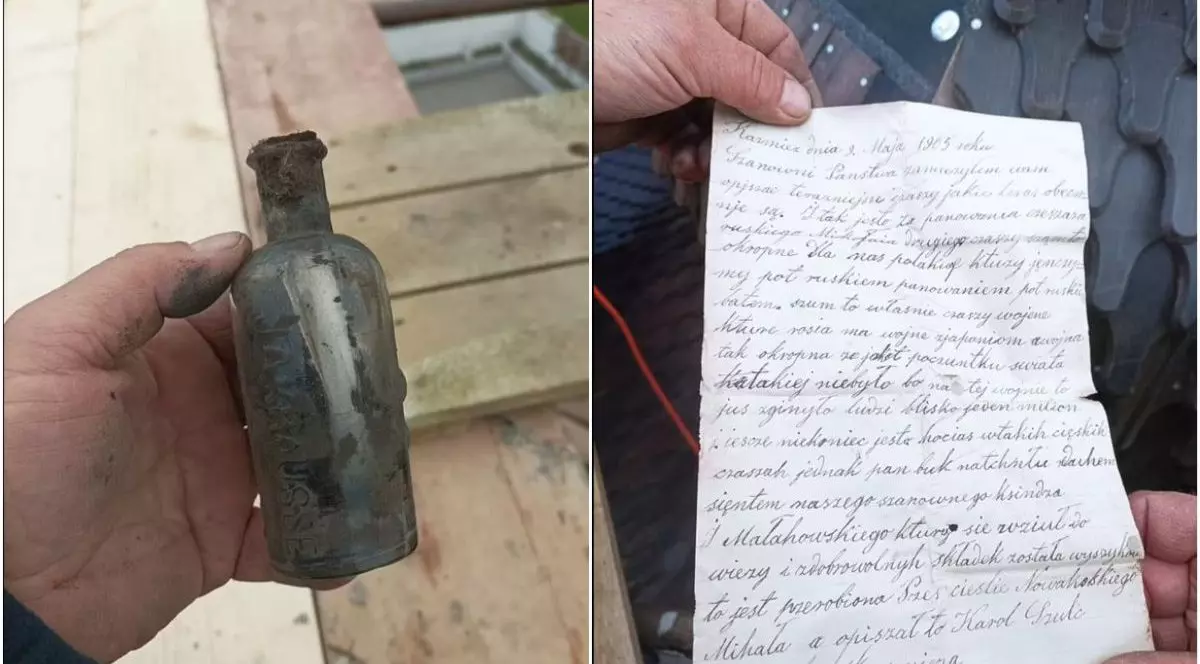 Kazmierz dnia 2 Maja 1905 roku
Szanowni Państwo zamierzyłem wam
opisać terazniejsze czaszy jakie teras obecz
nje są. I tak jesto ze panowania czeszaza
ruskiego Mikołaia drugiego czaszy
okropne dla nas polakuw kturzy jenczy
my pot ruskiem panowaniem pot ruskie
batem. szum to własnie czaszy wojene
kture rosia ma wojne zjapaniom a wojna
tak okropna ze jak pocznutku swiata
takiej niebyło bo na tej wojnie to
jus zginyło ludzi blisko jeden milion
i jescze niekoniec jesto hocias wtakih cięskih
czaszah jednak pan buk natchnitu duchem
sięntem naszego szanownego ksindza
Małahowskiego ktury sie wziuł do
wiezy i zdobrowolnyh składek została
to jest przerobiona Przes cieslie Nowakoskiego
Mihała a opiszał to Karol Szulc